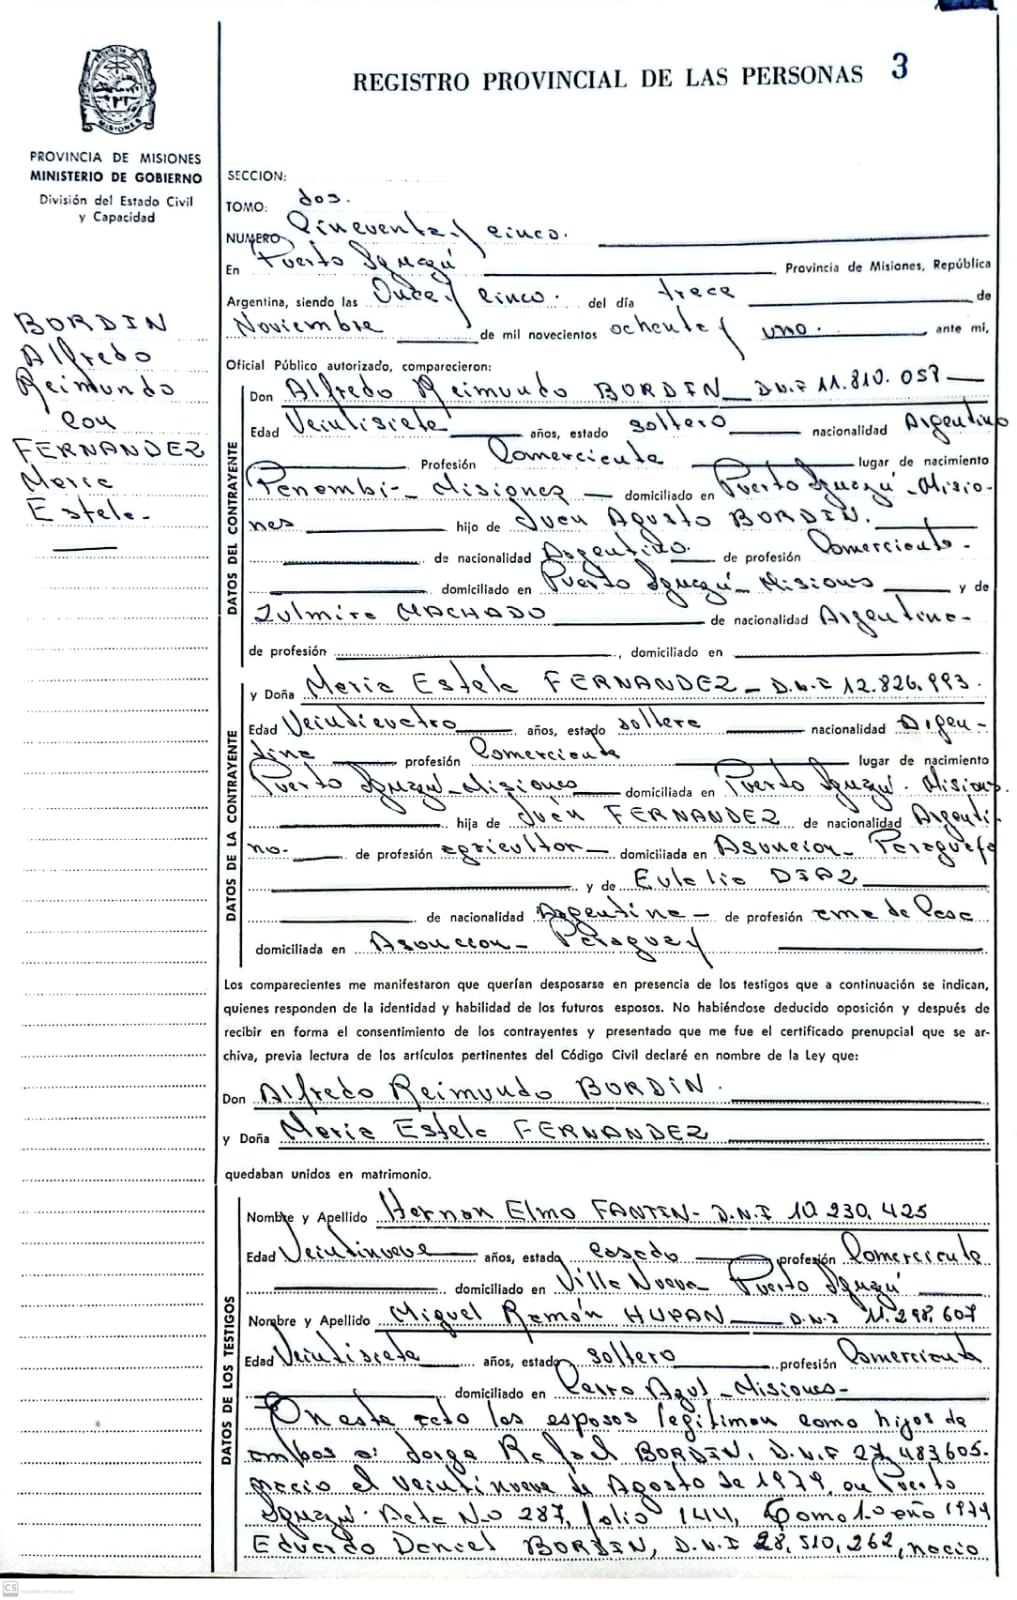 REGISTRO PROVINCIAL DE LAS PERSONAS 3
PROVINCIA DE MISIONES
MINISTERIO DE GOBIERNO
División del Estado Civil
y Capacidad
BORDIN
Alfredo
Reimundo
con
FERNANDEZ
Maria
Estela-
SECCION:
TOMO: dos.
NUMERO Cincuenta y cinco.
En Puerto Iguazú Provincia de Misiones, República
Argentina, siendo las Once y cinco. del día trece de
Noviembre de mil novecientos ochenta y uno. ante mi,
Oficial Público autorizado, comparecieron:
DATOS DEL CONTRAYENTE
Don Alfredo Reimundo BORDIN D.N.I 11.810.057
Edad Veintisiete años, estado soltero nacionalidad Argentino
Profesión Comerciante lugar de nacimiento
Panambi- Misiones domiciliado en Puerto Iguazú-Misio-
nes hijo de Juan Agusto BORDIN.
de nacionalidad Argentino. de profesión Comerciante.
domiciliado en Puerto Iguazú-Misiones y de
Zulmira MACHADO de nacionalidad Argentina-
de profesión , domiciliado en
DATOS DE LA CONTRAYENTE
y Doña Maria Estela FERNANDEZ - D.N.I 12.826.993.
Edad Veinticuatro años, estado soltera nacionalidad Argen-
tina profesión Comerciante lugar de nacimiento
Puerto Iguazú-Misiones domiciliada en Puerto Iguazú. Misiones.
hija de Juan FERNANDEZ de nacionalidad Argenti-
no- de profesión agricultor domiciliada en Asuncion- Paraguay
y de Eulalia DIAZ
de nacionalidad Argentina- de profesión ama de casa
domiciliada en Asuncion- Paraguay
Los comparecientes me manifestaron que querían desposarse en presencia de los testigos que a continuación se indican,
quienes responden de la identidad y habilidad de los futuros esposos. No habiéndose deducido oposición y después de
recibir en forma el consentimiento de los contrayentes y presentado que me fue el certificado prenupcial que se ar-
chiva, previa lectura de los artículos pertinentes del Código Civil declaré en nombre de la Ley que:
Don Alfredo Reimundo BORDIN.
y Doña Maria Estela FERNANDEZ
quedaban unidos en matrimonio.
DATOS DE LOS TESTIGOS
Nombre y Apellido Hernan Elmo FANTIN- D.N.I 10.230.425
Edad Veintinueve años, estado casado profesión Comerciante
domiciliado en Villa Nueva Puerto Iguazú
Nombre y Apellido Miguel Ramón HUPAN D.N.I 11.298.607
Edad Veintisiete años, estado soltero profesión Comerciante
domiciliado en Cerro Azul-Misiones-
En este acto los esposos legitiman como hijos de
ambos a: Jorge Rafael BORDIN, D.N.I 27.483605.
nacio el veintinueve de Agosto de 1979, en Puerto
Iguazú. Acta No 287, folio 144, Tomo 1.o año 1979
Eduardo Daniel BORDIN, D.N.I 28,510,262, nacio
CS